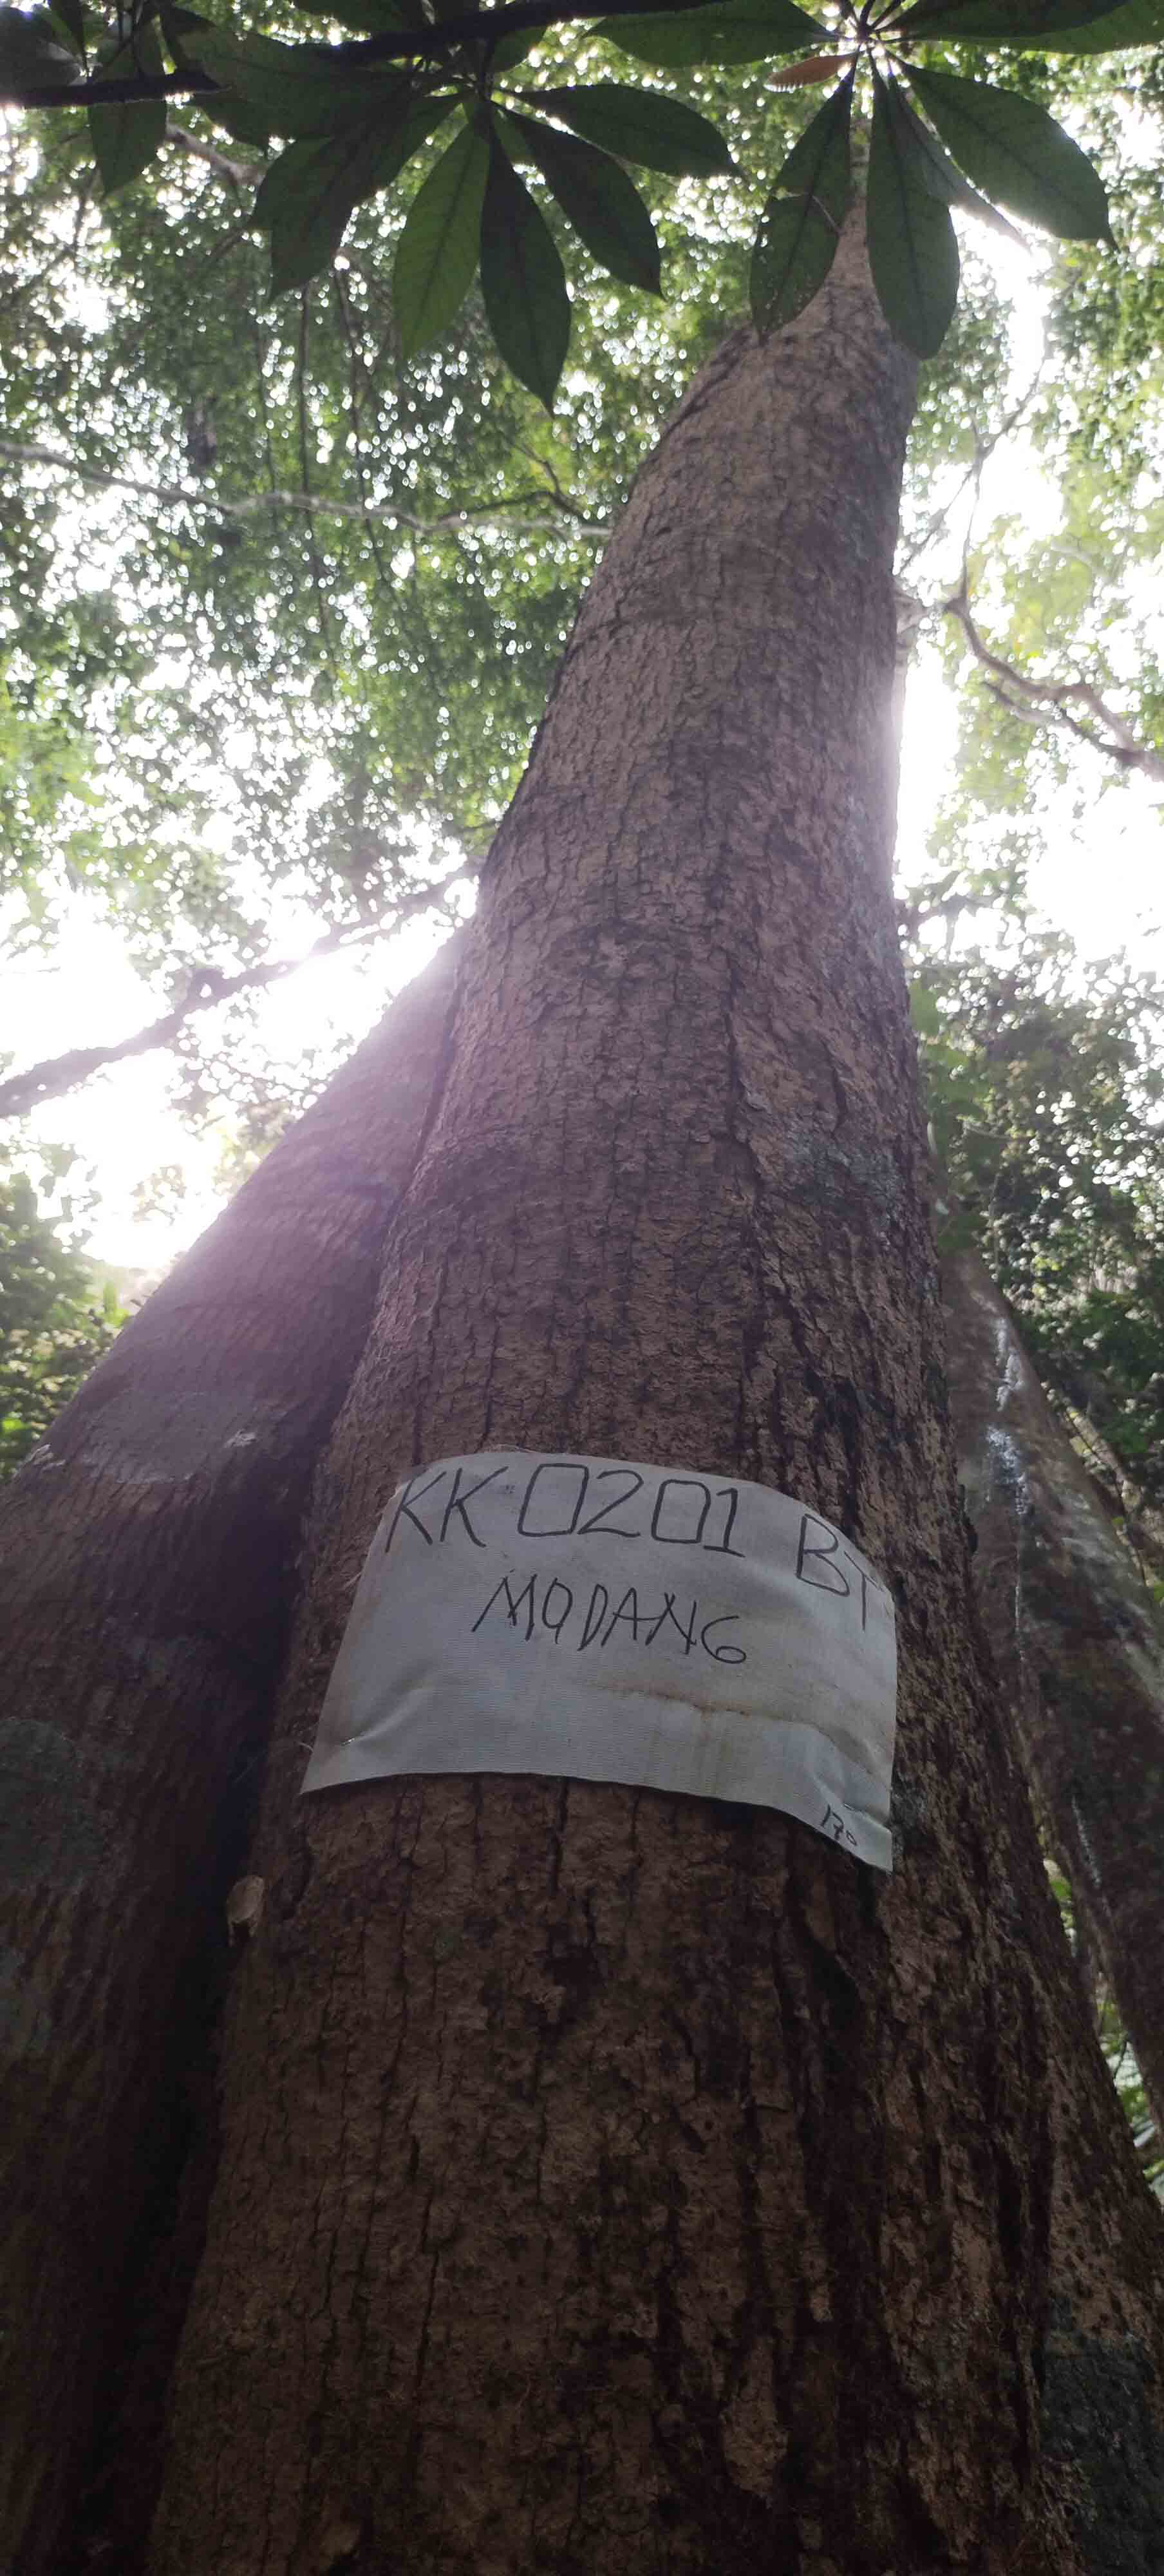 KK 0201 BT
MODANG
170